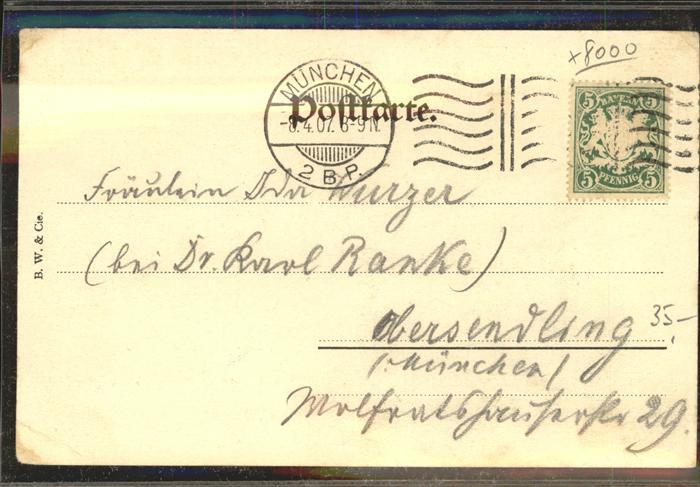 x8000
MÜNCHEN
Postkarte.
-8.4.07. 8-9 N.
2 B.P.
5 BAYERN 5
5 PFENNIG 5
Fräulein Ida Wurzer
(bei Dr. Karl Ranke)
Obersendling
35,-
(München)
Wolfratshauserstr 29.
B. W. & Cie.